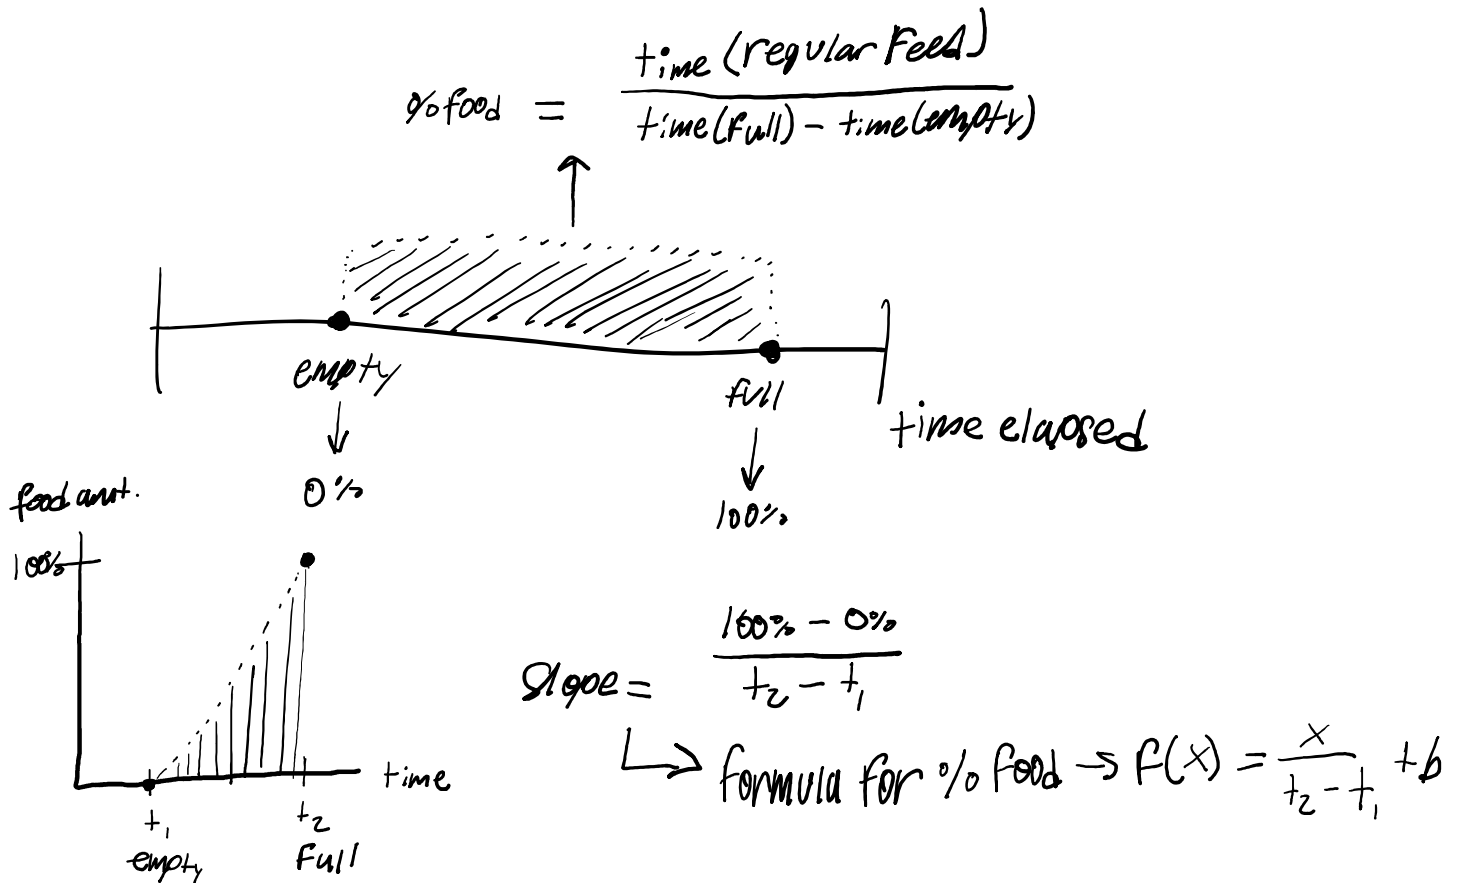 % food = time (regular Feed) / time(full) - time(empty)
empty
full
time elapsed
0%
100%
food amt.
100%
time
t1
t2
empty
Full
Slope = 100% - 0% / t2 - t1
formula for % food → f(x) = x / t2 - t1 + b